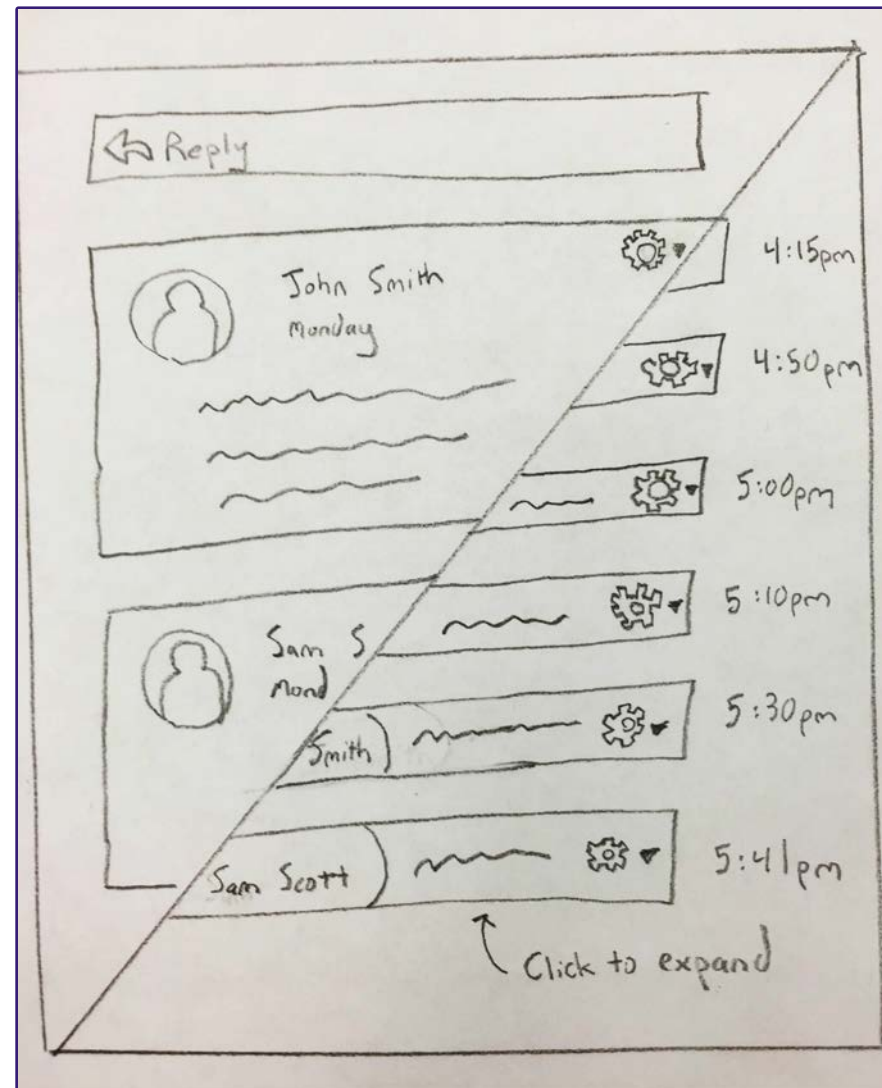 Reply
John Smith
Monday
4:15pm
4:50pm
5:00pm
5:10pm
Sam S
Mond
Smith
5:30pm
Sam Scott
5:41pm
Click to expand